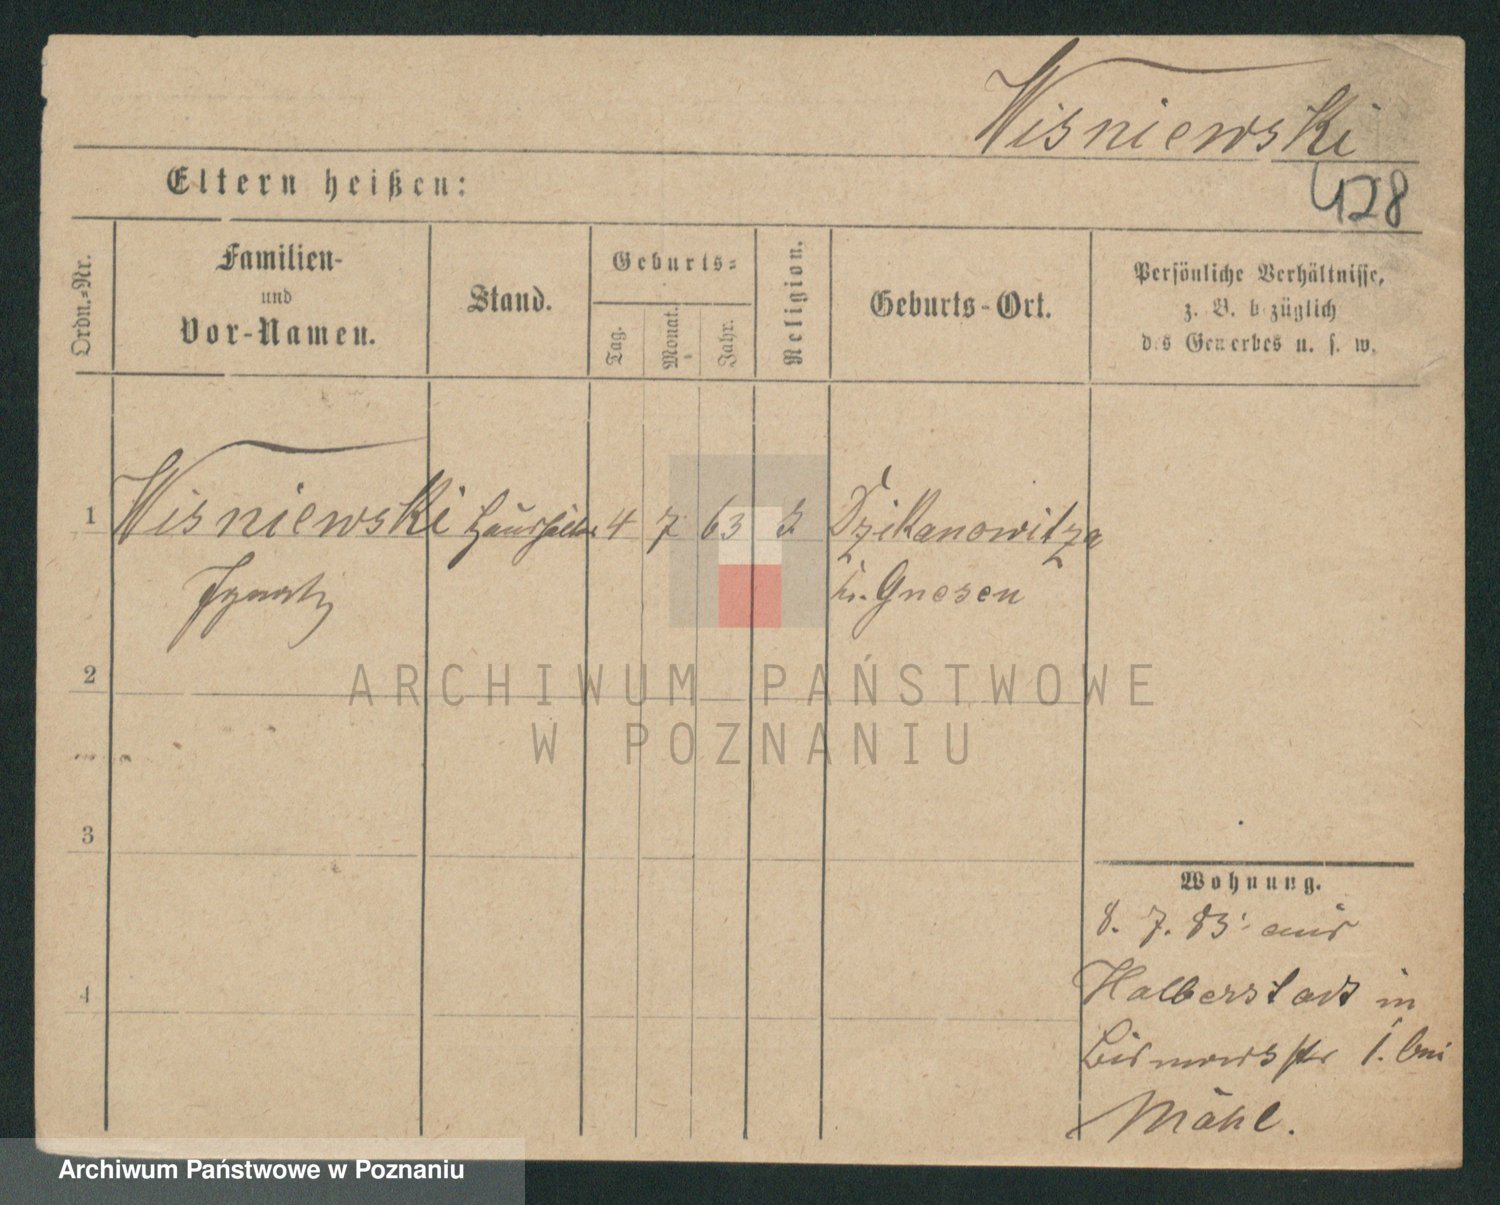 Wisniewski
428
Eltern heißen:
Ordn.=Nr.
Familien-
und
Vor-Namen.
Stand.
Geburts=
Tag.
Monat.
Jahr.
Religion.
Geburts-Ort.
Persönliche Verhältnisse,
z. B. bezüglich
des Gewerbes u. s. w.
1 Wisniewski Haushälter 4 7 63 Dzikanowitza
Ignatz Kr. Gnesen
2
3
4
Wohnung.
8. 7. 83: aus
Halberstadt in
1. bei
Mähl.
ARCHIWUM PAŃSTWOWE
W POZNANIU
Archiwum Państwowe w Poznaniu